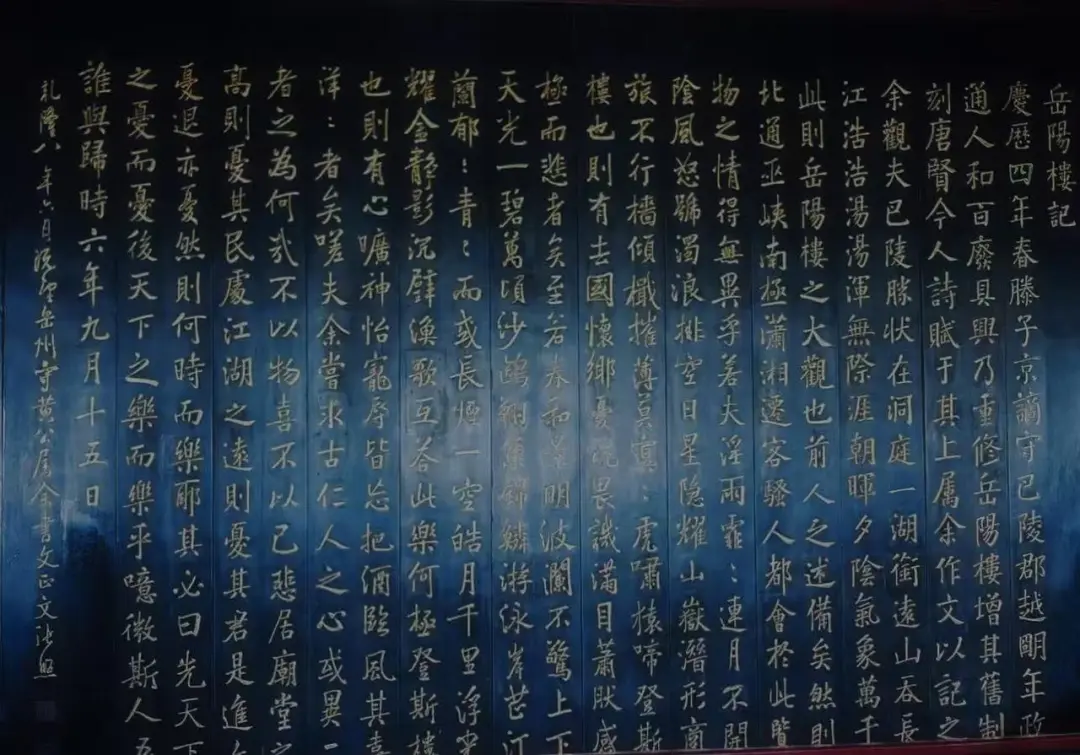 岳陽樓記
慶歷四年春滕子京謫守巴陵郡越朙年政
通人和百廢具興乃重修岳陽樓增其舊制
刻唐賢今人詩賦于其上属余作文以記之
余觀夫巴陵勝状在洞庭一湖銜遠山吞長
江浩浩湯湯渾無際涯朝暉夕陰氣象萬千
此則岳陽樓之大觀也前人之述備矣然則
北通巫峡南極瀟湘遷客騷人都會於此覽
物之情得無異乎若夫淫雨霏:連月不開
陰風怒號濁浪排空日星隐耀山嶽潛形商
旅不行檣傾檝摧薄莫冥:虎嘯猿啼登斯
樓也則有去國懷鄉憂讒畏譏滿目蕭肰感
極而悲者矣至若春和景明波瀾不驚上下
天光一碧萬頃沙鷗翔集錦鱗游泳岸芷汀
蘭郁:青:而或長煙一空皓月千里浮光
耀金静影沉璧漁歌互荅此樂何極登斯樓
也則有心曠神怡寵辱皆忘把酒臨風其喜
洋:者矣嗟夫余嘗求古仁人之心或異二
者之為何哉不以物喜不以己悲居廟堂之
高則憂其民處江湖之遠則憂其君是進亦
憂退亦憂然則何時而樂耶其必曰先天下
之憂而憂後天下之樂而樂乎噫微斯人吾
誰與歸時六年九月十五日
乾隆八年六月岳州守黄公属余書文正文張照